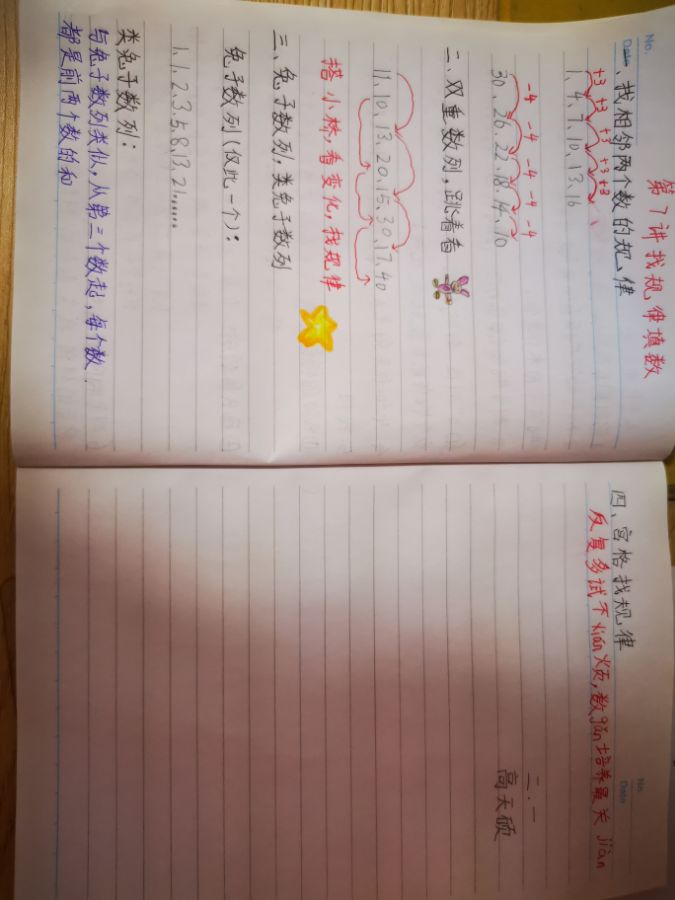 No.
Date
第7讲找规律填数
一、找相邻两个数的规律
+3 +3 +3 +3 +3
1、4、7、10、13、16
-4 -4 -4 -4 -4
30、26、22、18、14、10
二、双重数列,跳着看
11、10、13、20、15、30、17、40
搭小桥,看变化,找规律
三、兔子数列,类兔子数列
兔子数列(仅此一个):
1、1、2、3、5、8、13、21......
类兔子数列:
与兔子数列类似,从第三个数起,每个数
都是前两个数的和
No.
Date
四、宫格找规律
反复多试不xián烦,数gǎn培养最关jiàn
二.一
高天硕